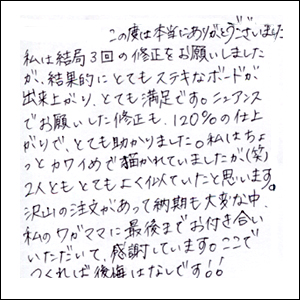 この度は本当にありがとうございました
私は結局3回の修正をお願いしました
が、結果的にとてもステキなボードが
出来上がり、とても満足です。ニュアンス
でお願いした修正も、120%の仕上
がりで、とても助かりました。私はちょ
っとカワイめで描かれていましたが(笑)
2人ともとてもよく似ていたと思います。
沢山の注文があって納期も大変な中、
私のワガママに最後までお付き合い
いただいて、感謝しています。ここで
つくれば後悔はなしです!!